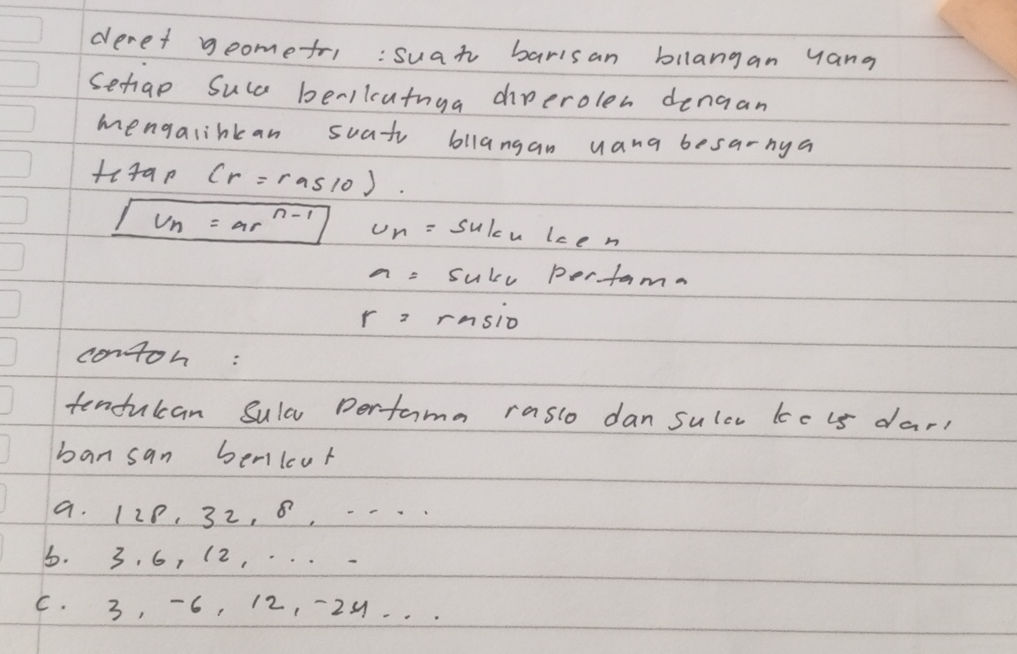 deret geometri : suatu barisan bilangan yang
setiap suku berikutnya diperoleh dengan
mengalihkan suatu bilangan yang besarnya
tetap (r = rasio).
Un = ar^n-1 Un = suku ke n
a = suku pertama
r = rasio
contoh :
tentukan suku pertama rasio dan suku ke 15 dari
barisan berikut
a. 128, 32, 8, ....
b. 3, 6, 12, ....
c. 3, -6, 12, -24 ...